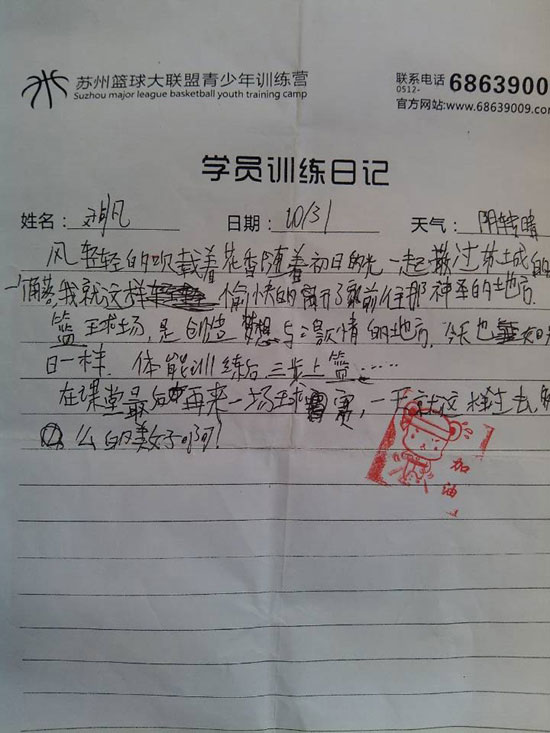 苏州篮球大联盟青少年训练营
Suzhou major league basketball youth training camp
联系电话 0512- 68639009
官方网站:www.68639009.com
学员训练日记
姓名: 凡 日期: 10/31 天气: 阴转晴
风轻轻的吹载着花香随着初日的光一起撒过城的
我就这样愉快的离开了家前往那神圣的地方.
篮球场,是创造梦想与激情的地方,今天也如
日一样.体能训练后三步上篮……
在课堂最后再来一场球赛,一天就这样过去,
么的美好啊!
加油